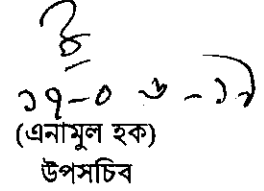 ১৭-০৬-১৭
(এনামুল হক)
উপসচিব